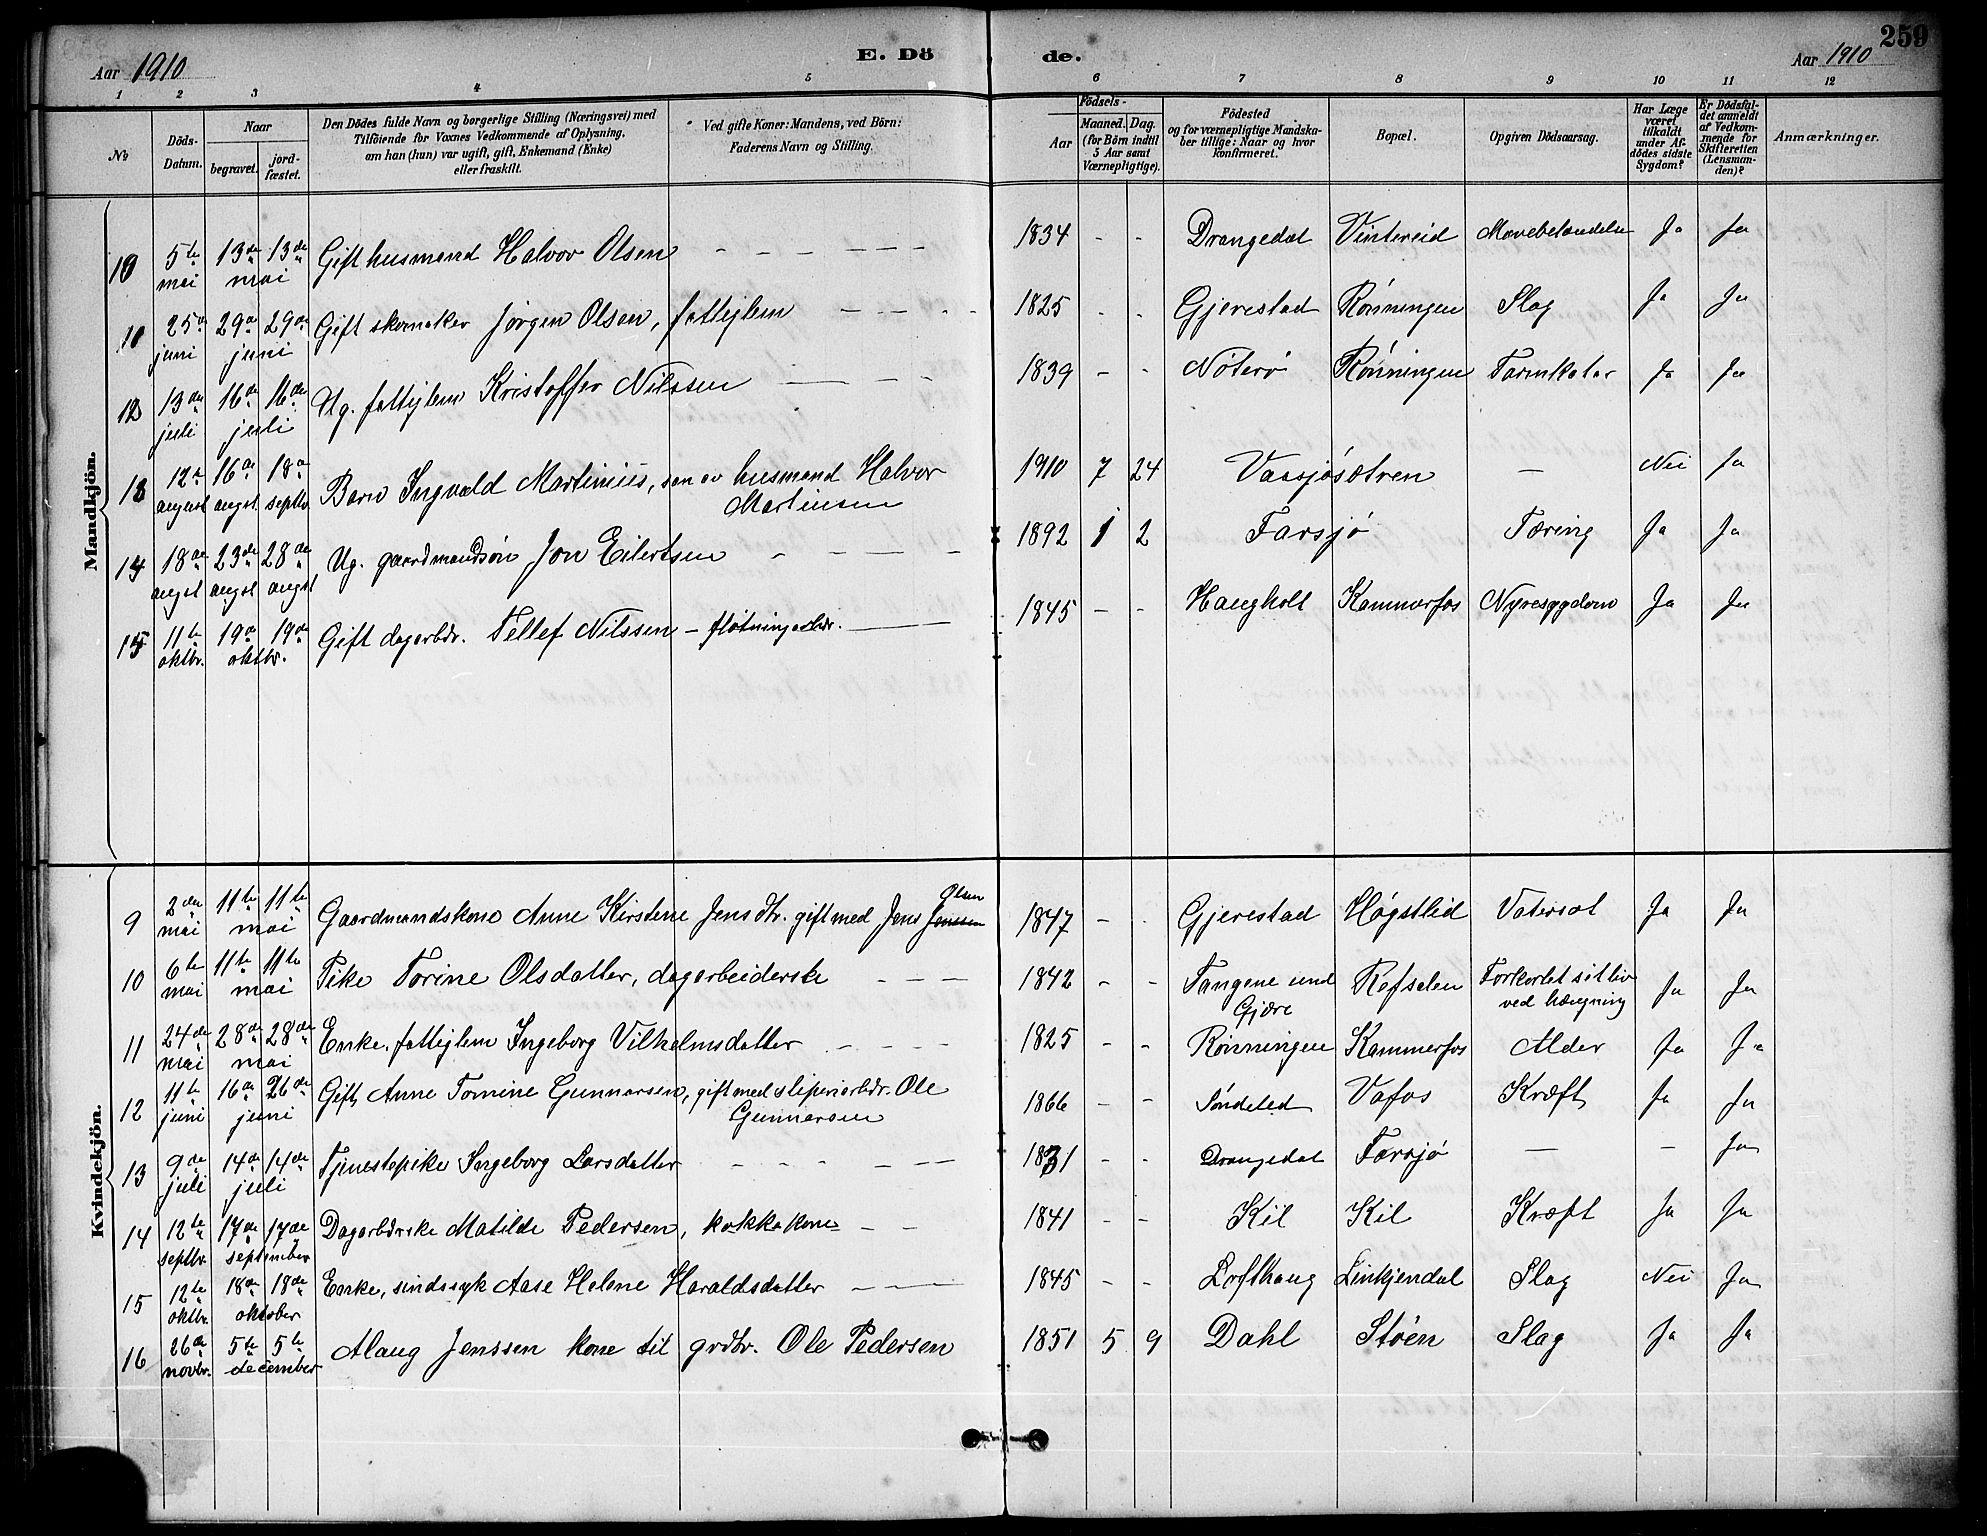 259
Aar 1910
E. Dö
de.
Aar 1910
1 2 3 4 5 6 7 8 9 10 11 12
№
Döds-Datum.
Naar
begravet.
jord-fæstet.
Den Dödes fulde Navn og borgerlige Stilling (Næringsvei) med
Tilföiende for Voxnes Vedkommende af Oplysning,
om han (hun) var ugift, gift, Enkemand (Enke)
eller fraskilt.
Ved gifte Koner: Mandens, ved Börn:
Faderens Navn og Stilling.
Födsels-
Aar
Maaned. Dag.
(for Börn indtil
5 Aar samt
Værnepligtige).
Födested
og for værnepligtige Mandska-
ber tillige: Naar og hvor
konfirmeret.
Bopæl.
Opgiven Dödsaarsag.
Har Læge
været
tilkaldt
under Af-
dödes sidste
Sygdom?
Er Dödsfal-
det anmeldt
af Vedkom-
mende for
Skifteretten
(Lensman-
den)?
Anmærkninger.
Mandkjön.
10 5te mai 13de 13de mai Gift husmand Halvor Olsen - - - 1834 - - Drangedal Vintereid Mavebetændelse Ja Ja
11 25de juni 29de 29de juni Gift skomaker Jørgen Olsen, fattiglem - - - 1825 - - Gjerestad Rønningen Slag Ja Ja
12 13de juli 16de 16de juli Ug. fattiglem Kristoffer Nilssen - - - 1839 - - Nøterø Rønningen Tarmkatar Ja Ja
13 12te august 16de augst. 18de septbr. Barn Ingvald Martinius, søn av husmand Halvor
Martinsen 1910 7 24 Vaasjøsætren - Nei Ja
14 18de augst 23de augst 28de augst Ug. gaardmandsøn Jon Eilertsen - - - 1892 1 2 Farsjø Tæring Ja Ja
15 11te oktbr. 19de 19de oktbr. Gift dagarbdr. Tellef Nilssen - fløtningarbdr. - - 1845 - - Haugholt Kammerfos Nyresygdom Ja Ja
Kvindekjön.
9 2den mai 11te 11te mai Gaardmandskone Anne Kirstene Jensdtr. gift med Jens Jenssen Olsen 1847 - - Gjerestad Høgstlid Vatersot Ja Ja
10 6te mai 11te 11te mai Pike Torine Olsdatter, dagarbeiderske - - - 1842 - - Tangene und
Gjære Refsalen Forkortet sit liv
ved hængning Ja Ja
11 24de mai 28de 28de mai Enke, fattiglem Ingeborg Vilhelmsdatter - - - 1825 - - Rønningen Kammerfos Alder Ja Ja
12 11te juni 16de 26de juni Gift, Anne Tomine Gunnarsen, gift med sliperiarbdr. Ole
Gunnarsen 1866 - - Søndeled Vafos Kræft Ja Ja
13 9de juli 14de 14de juli Tjenestepike Ingeborg Larsdatter - - - 1831 - - Drangedal Farsjø - - Ja
14 12te septbr. 17de 17de september Dagarbdrske Matilde Pedersen, kokkekone - - 1841 - - Kil Kil Kræft Ja Ja
15 12te oktbr. 18de 18de oktober Enke, sindssyk Aase Helene Haraldsdatter - - - 1845 - - Lofthaug Linkjendal Slag Nei Ja
16 26de novbr. 5te 5te december Alaug Jenssen kone til grdbr. Ole Pedersen 1851 5 9 Dahl Støen Slag Ja Ja